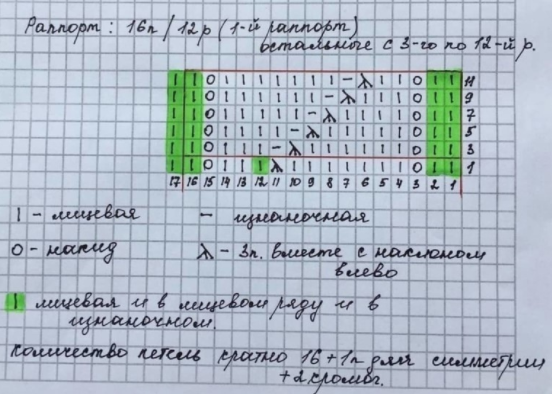 Раппорт: 16п / 12р (1-й раппорт)
остальные с 3-го по 12-й р.
| | o | | | | | | | − λ | | o | | 11
| | o | | | | | | − λ | | | o | | 9
| | o | | | | | − λ | | | | o | | 7
| | o | | | | − λ | | | | | o | | 5
| | o | | | − λ | | | | | | o | | 3
| | o | | | λ | | | | | | | o | | 1
17 16 15 14 13 12 11 10 9 8 7 6 5 4 3 2 1
| - лицевая − изнаночная
о - накид λ - 3п. вместе с наклоном
влево
| лицевая и в лицевом ряду и в
изнаночном.
Количество петель кратно 16+1п для симметрии
+2 кромоч.